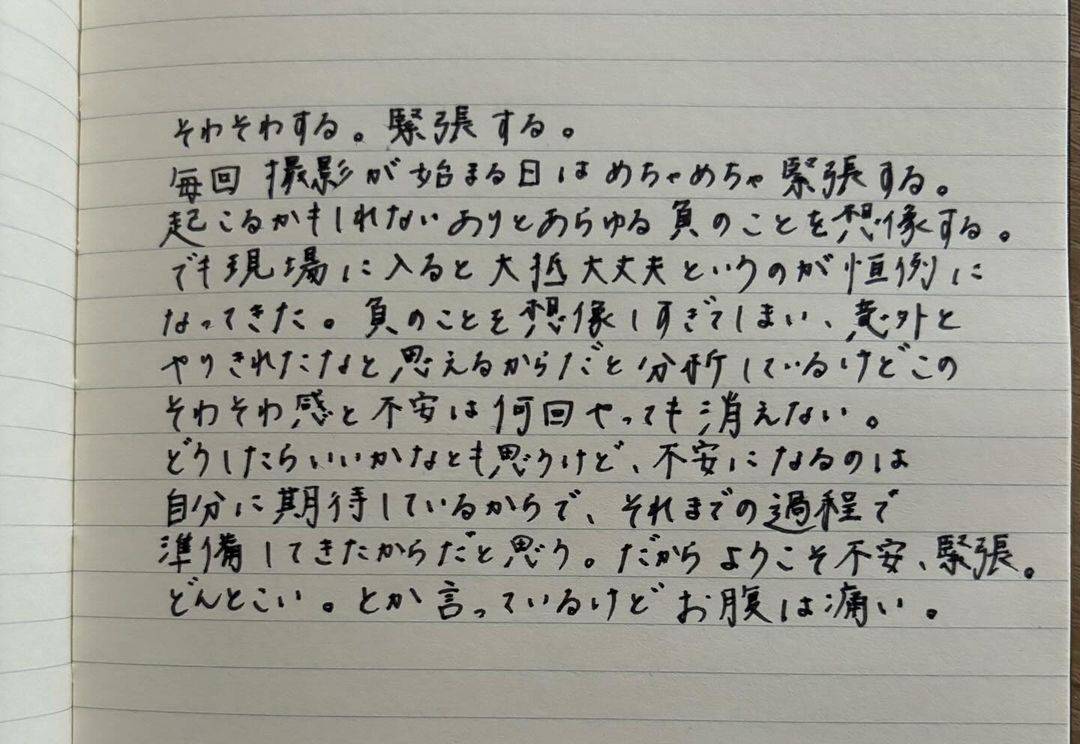 そわそわする。緊張する。
毎回 撮影が始まる日はめちゃめちゃ緊張する。
起こるかもしれないありとあらゆる負のことを想像する。
でも現場に入ると大抵大丈夫というのが恒例に
なってきた。負のことを想像しすぎてしまい、意外と
やりきれたなと思えるからだと分析しているけどこの
そわそわ感と不安は何回やっても消えない。
どうしたらいいかなとも思うけど、不安になるのは
自分に期待しているからで、それまでの過程で
準備してきたからだと思う。だからようこそ不安、緊張。
どんとこい。とか言っているけどお腹は痛い。